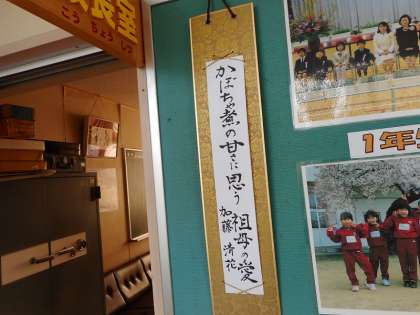 長室
こうちょうしつ
かぼちゃ煮の甘さに思う祖母の愛
加藤 清花
1年生